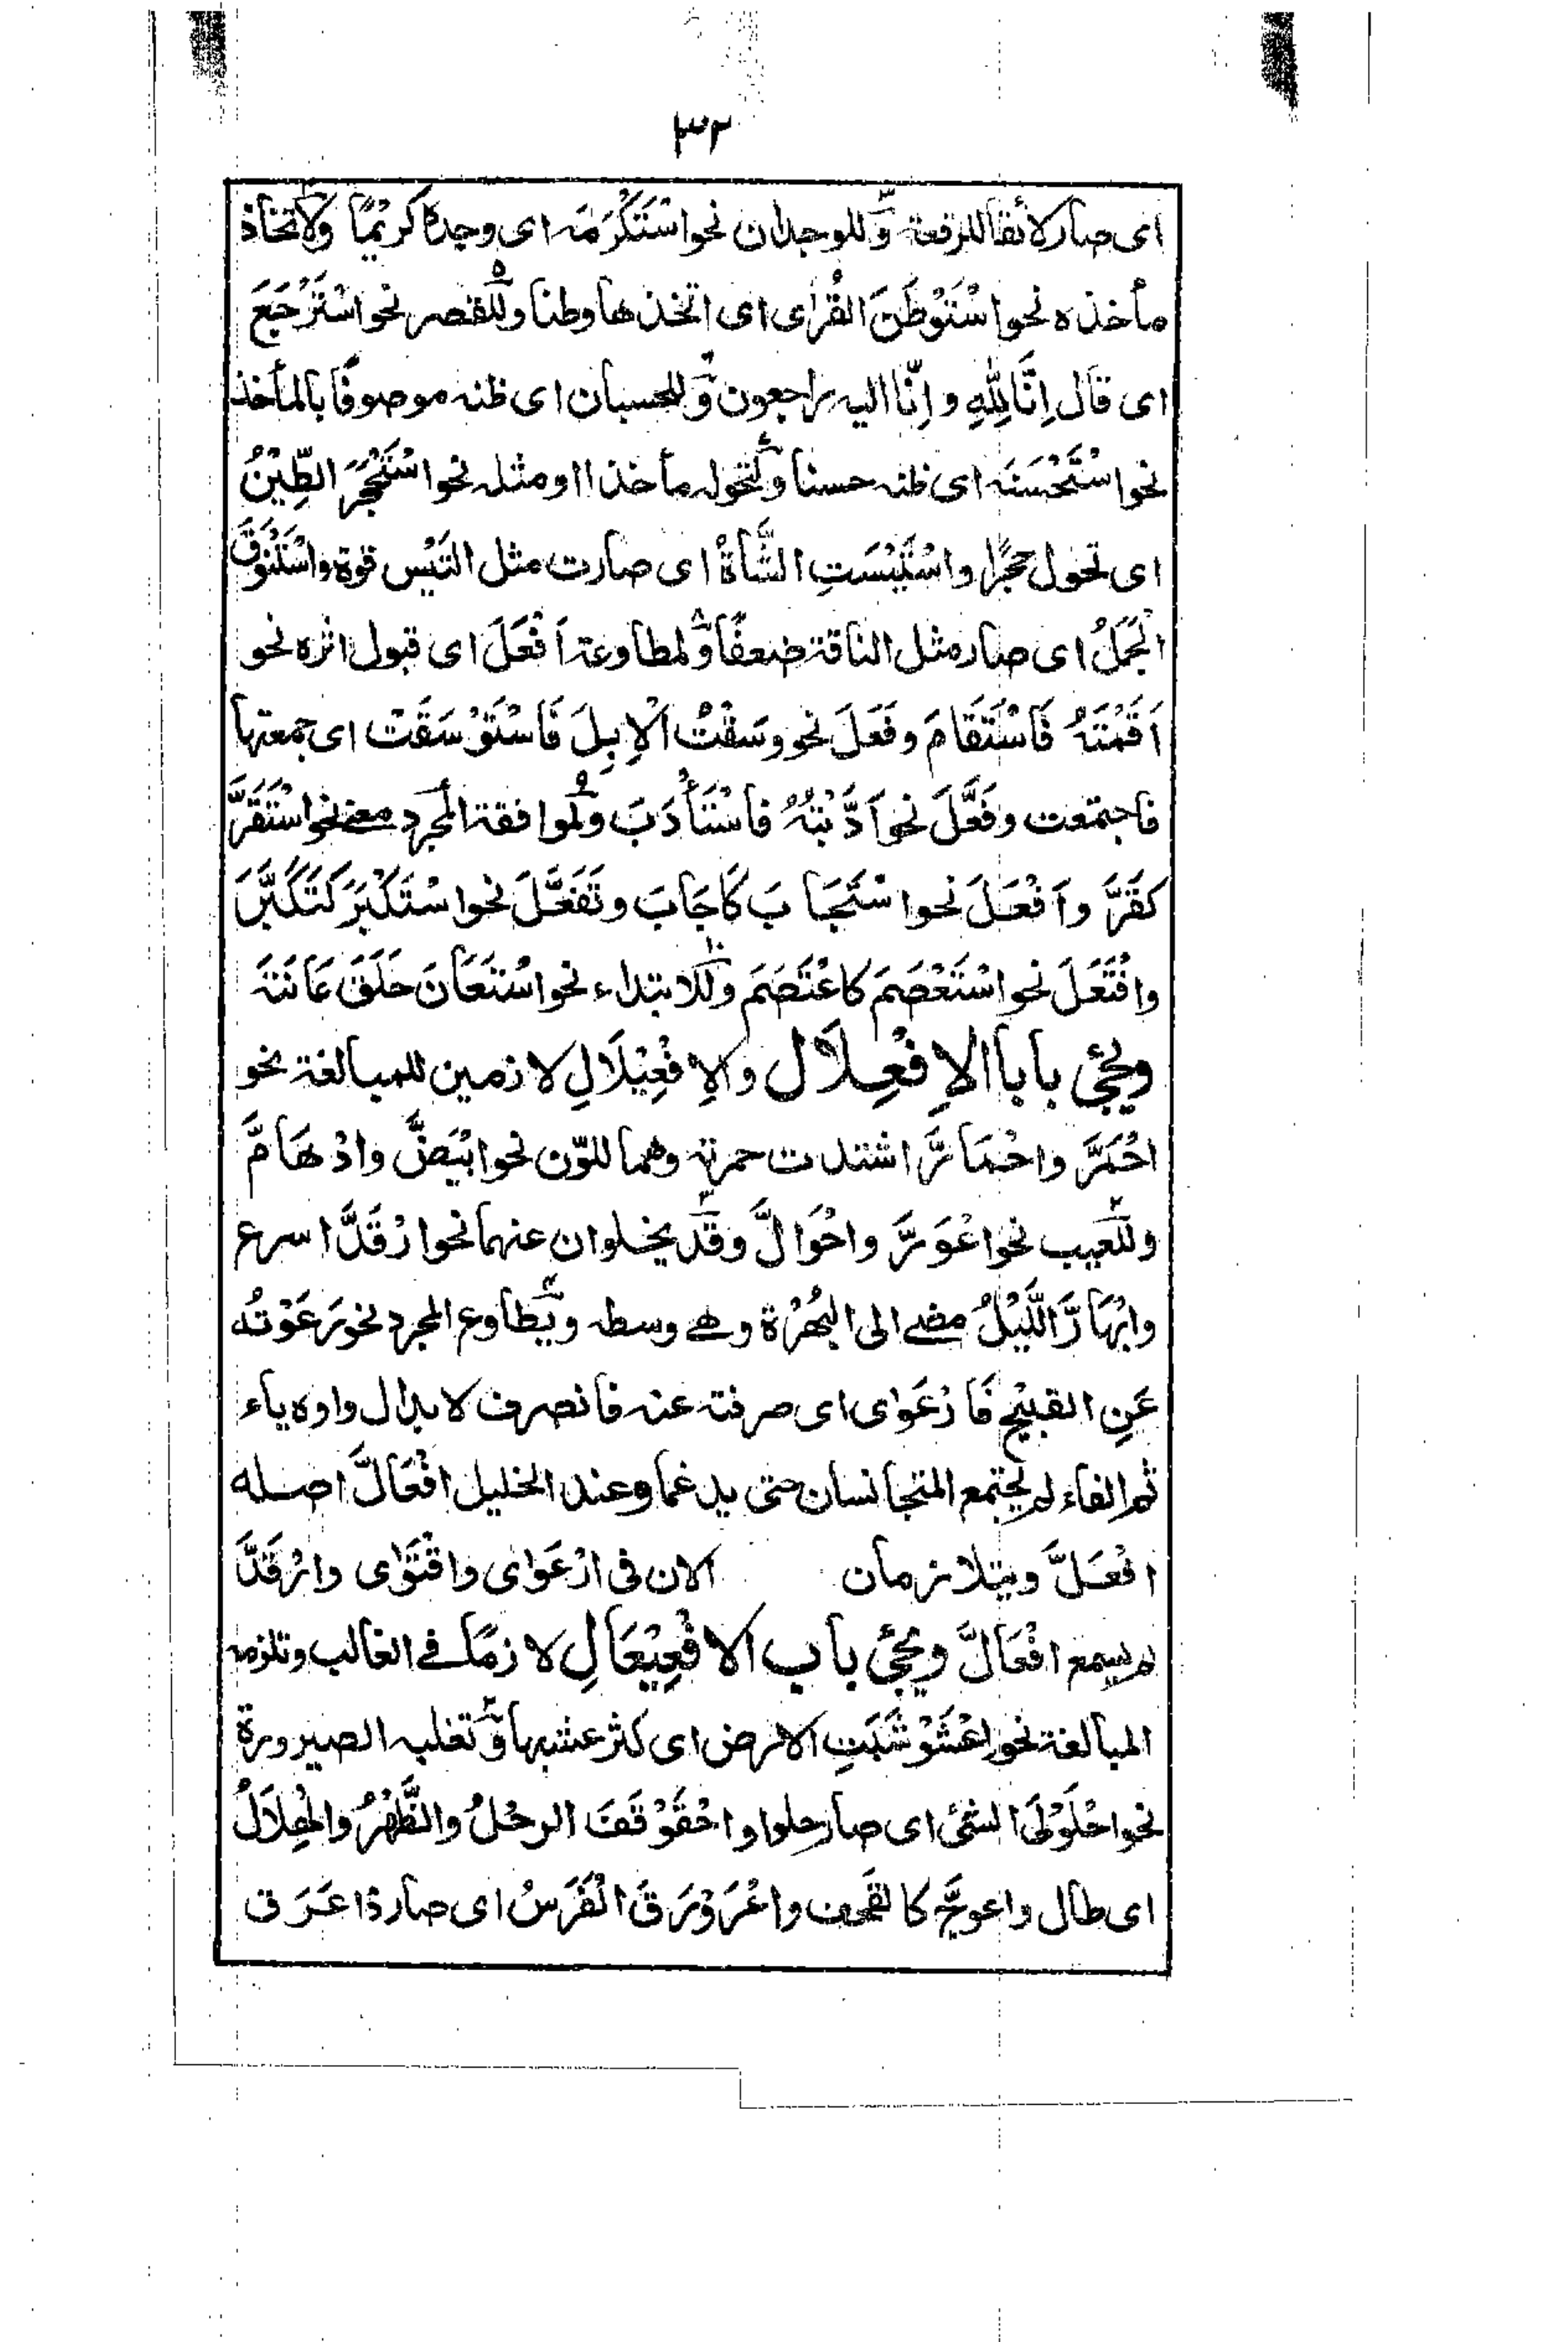 ٣٢
اى صار لائقا للرقعة وّللوجدان نحو اسْتَكْرَمَتہ اى وجده كريْمًا ولاتخاذ
مأخذه نحو اسْتَوْطَنَ القُرٰى اى اتخذها وطنا وللقصر نحو اسْتَرْجَعَ
اى قال اِنَّا لِلّٰهِ و اِنَّا اليہ راجعون وّللحسبان اى ظنہ موصوفًا بالمأخذ
نحو اسْتَحْسَنَہ اى ظنہ حسنا ولتحولہ مأخذا او مثلہ نحو اسْتَحْجَرَ الطِّيْنُ
اى تحول حجرًا واسْتَتْيَسَتِ الشَّاةُ اى صارت مثل التَيْس قوة واسْتَنْوَقَ
الجَمَلُ اى صار مثل الناقة ضعفًا وّلمطاوعة اَفْعَلَ اى قبول اثره نحو
اَقَمْتَهُ فَاسْتَقَامَ وفَعَلَ نحو وسَقْتُ الْاِبِلَ فَاسْتَوْسَقَتْ اى جمعتها
فاجتمعت وفَعَّلَ نحو اَدَّبْتُهُ فاسْتَأْدَبَ ولموافقة المجرد معنے نحو اسْتَقَرَّ
كقَرَّ واَفْعَلَ نحو اسْتَجَابَ كَاَجَابَ وتَفَعَّلَ نحو اسْتَكْبَرَ كَتَكَبَّرَ
وافْتَعَلَ نحو اسْتَعْصَمَ كاعْتَصَمَ وللابتداء نحو اسْتَعَانَ حَلَقَ عَانَتَہَ
ويجئ بابا الاِفْعِلَال والاِفْعِيْلَالِ لازمين للمبالغة نحو
احْمَرَّ واحْمَارَّ اشتدت حمرتہ وهما للّون نحو ابْيَضَّ وادْهَامَّ
وللعيب نحو اعْوَرَّ واحْوَالَّ وقَدْ يخلوان عنهما نحو ارْقَدَّ اسرع
وابْهَارَّ اللَّيْلُ مضے الى البُهْرَة وهے وسطہ ويُطاوع المجرد نحو رَعَوْتُه
عَنِ القبيْح فَارْعَوٰى اى صرفتہ عنہ فانصرف لابدال واوه ياء
ثم الفاء لم يجتمع المتجانسان حتى يدغما وعند الخليل افْعَالَّ اصله
افْعَلَّ ويتلازمان الان فى ارْعَوٰى واقْتَوٰى وارْقَدَّ
لم يسمع افْعَالَّ ويجئ باب الافْعِيْعَالِ لازمًا فے الغالب وتلزمہ
المبالغة نحو اعْشَوْشَبَتِ الارض اى كثر عشبها وّتغلبہ الصيرورة
نحو احْلَوْلَى الشئ اى صار حلوا واحْقَوْقَفَ الرحْلُ والظَّهْرُ والهِلَالُ
اى طال واعوجّ كالقحف واعْرَوْرَقَ الْفَرَسُ اى صار ذا عَرَق